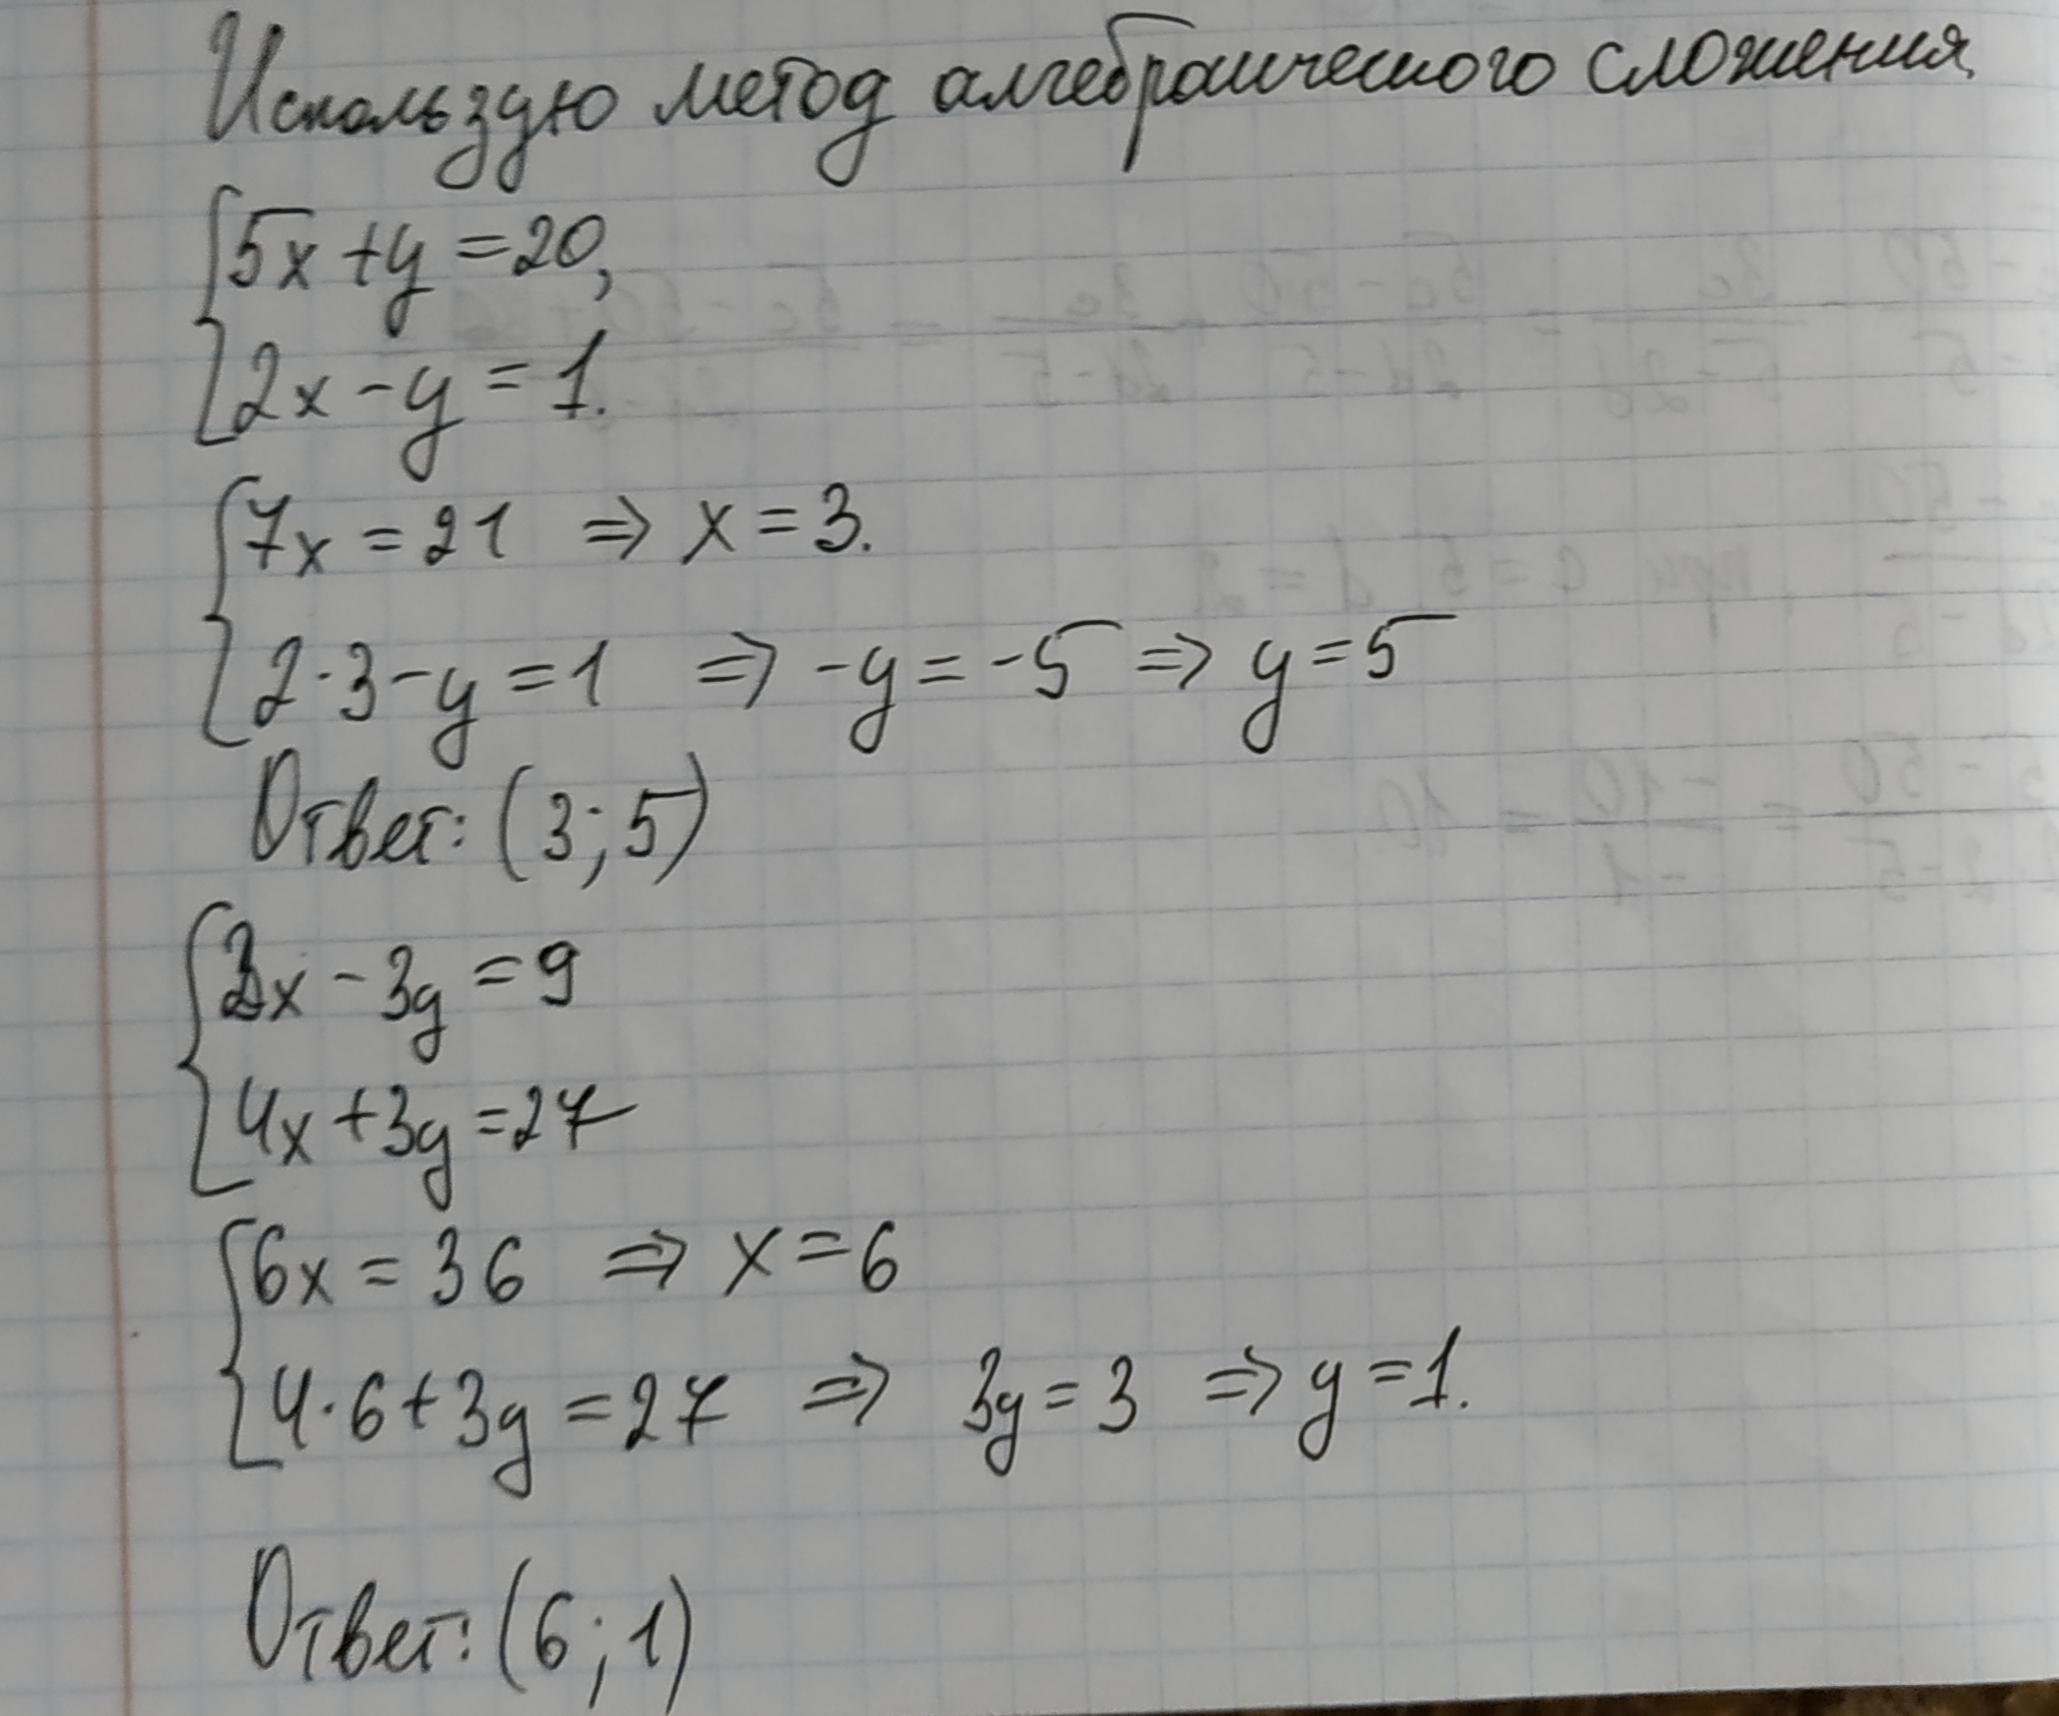 Использую метод алгебраического сложения
5x + y = 20,
2x - y = 1.
7x = 21 ⇒ x = 3.
2·3 - y = 1 ⇒ -y = -5 ⇒ y = 5
Ответ: (3; 5)
2x - 3y = 9
4x + 3y = 27
6x = 36 ⇒ x = 6
4·6 + 3y = 27 ⇒ 3y = 3 ⇒ y = 1.
Ответ: (6; 1)